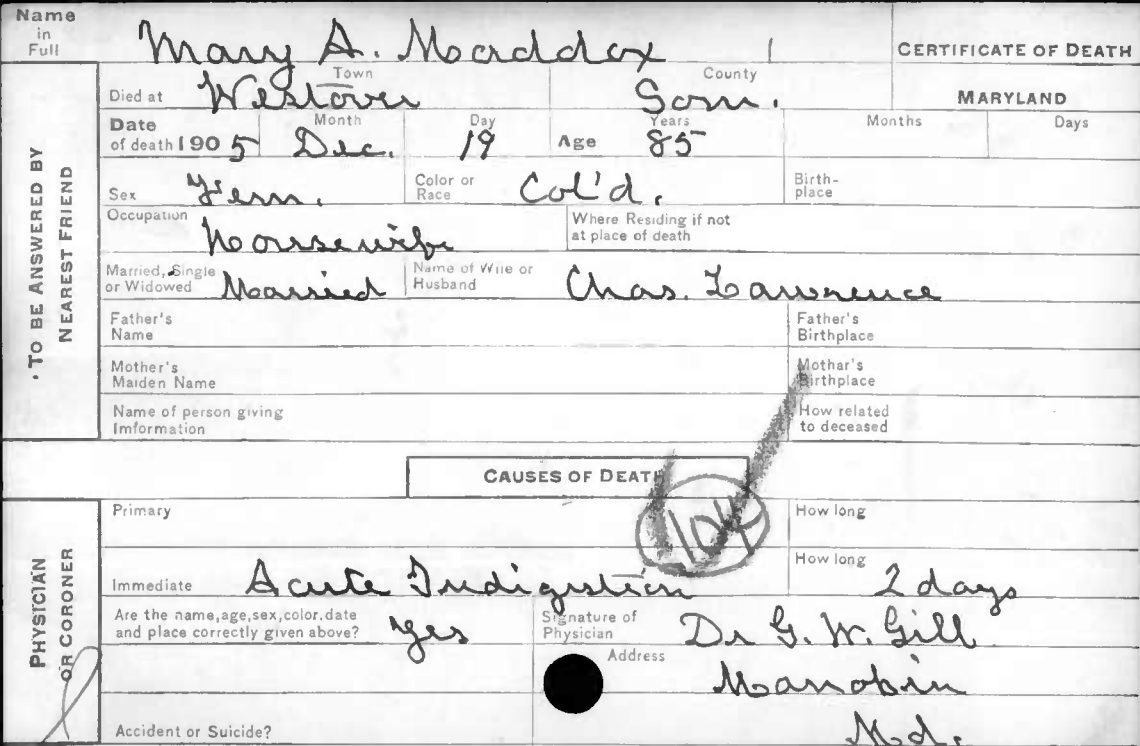 Name in Full Mary A. Maddox CERTIFICATE OF DEATH
TO BE ANSWERED BY NEAREST FRIEND
Died at Town Westover County Som. MARYLAND
Date of death 1905 Month Dec. Day 19 Age Years 85 Months Days
Sex Fem. Color or Race Col'd. Birth-place
Occupation Housewife Where Residing if not at place of death
Married, Single or Widowed Married Name of Wife or Husband Chas. Lawrence
Father's Name Father's Birthplace
Mother's Maiden Name Mothar's Birthplace
Name of person giving Imformation How related to deceased
CAUSES OF DEATH
104
PHYSICIAN OR CORONER
Primary How long
Immediate Acute Indigestion How long 2 days
Are the name,age,sex,color,date and place correctly given above? Yes Signature of Physician Dr G. W. Gill
Address Manokin
Md.
Accident or Suicide?